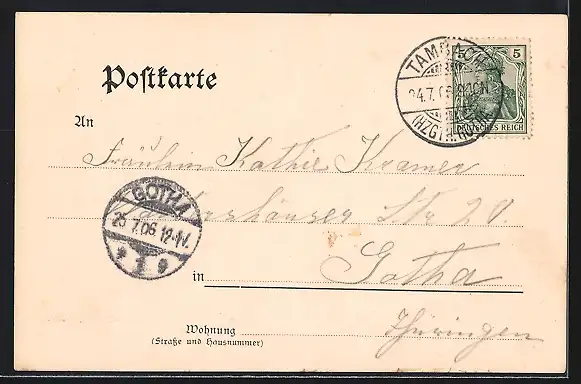 Postkarte
5
DEUTSCHES REICH
TAMBACH
24.7.06
(HZGTH.
An
Fräulein Kathie Kramer
Str 20.
GOTHA
25.7.06.12-1N.
1
in Gotha
Wohnung
(Straße und Hausnummer)
Thüringen